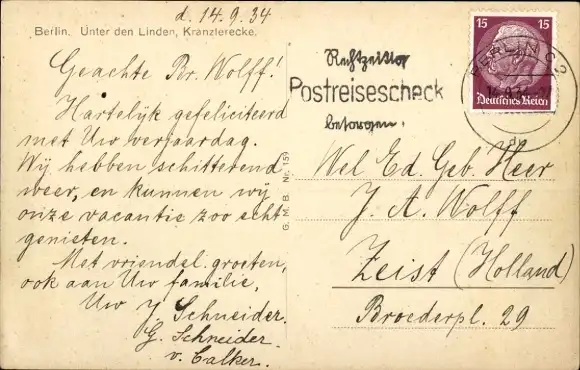 d. 14.9.34
Berlin. Unter den Linden, Kranzlerecke.
Geachte Br. Wolff!
Hartelijk gefeliciteerd
met Uw verjaardag.
Wij hebben schitterend
weer, en kunnen wij
onze vacantie zoo echt
genieten.
Met vriendel. groeten,
ook aan Uw familie,
Uw J. Schneider.
G. Schneider
v. Calker.
G. M. B. Nr. 159
Rechtzeitig
Postreisescheck
besorgen.
15 15
Deutsches Reich
BERLIN C2
14.9.34
Wel Ed. Geb. Heer
J. A. Wolff
Zeist (Holland)
Broederpl. 29